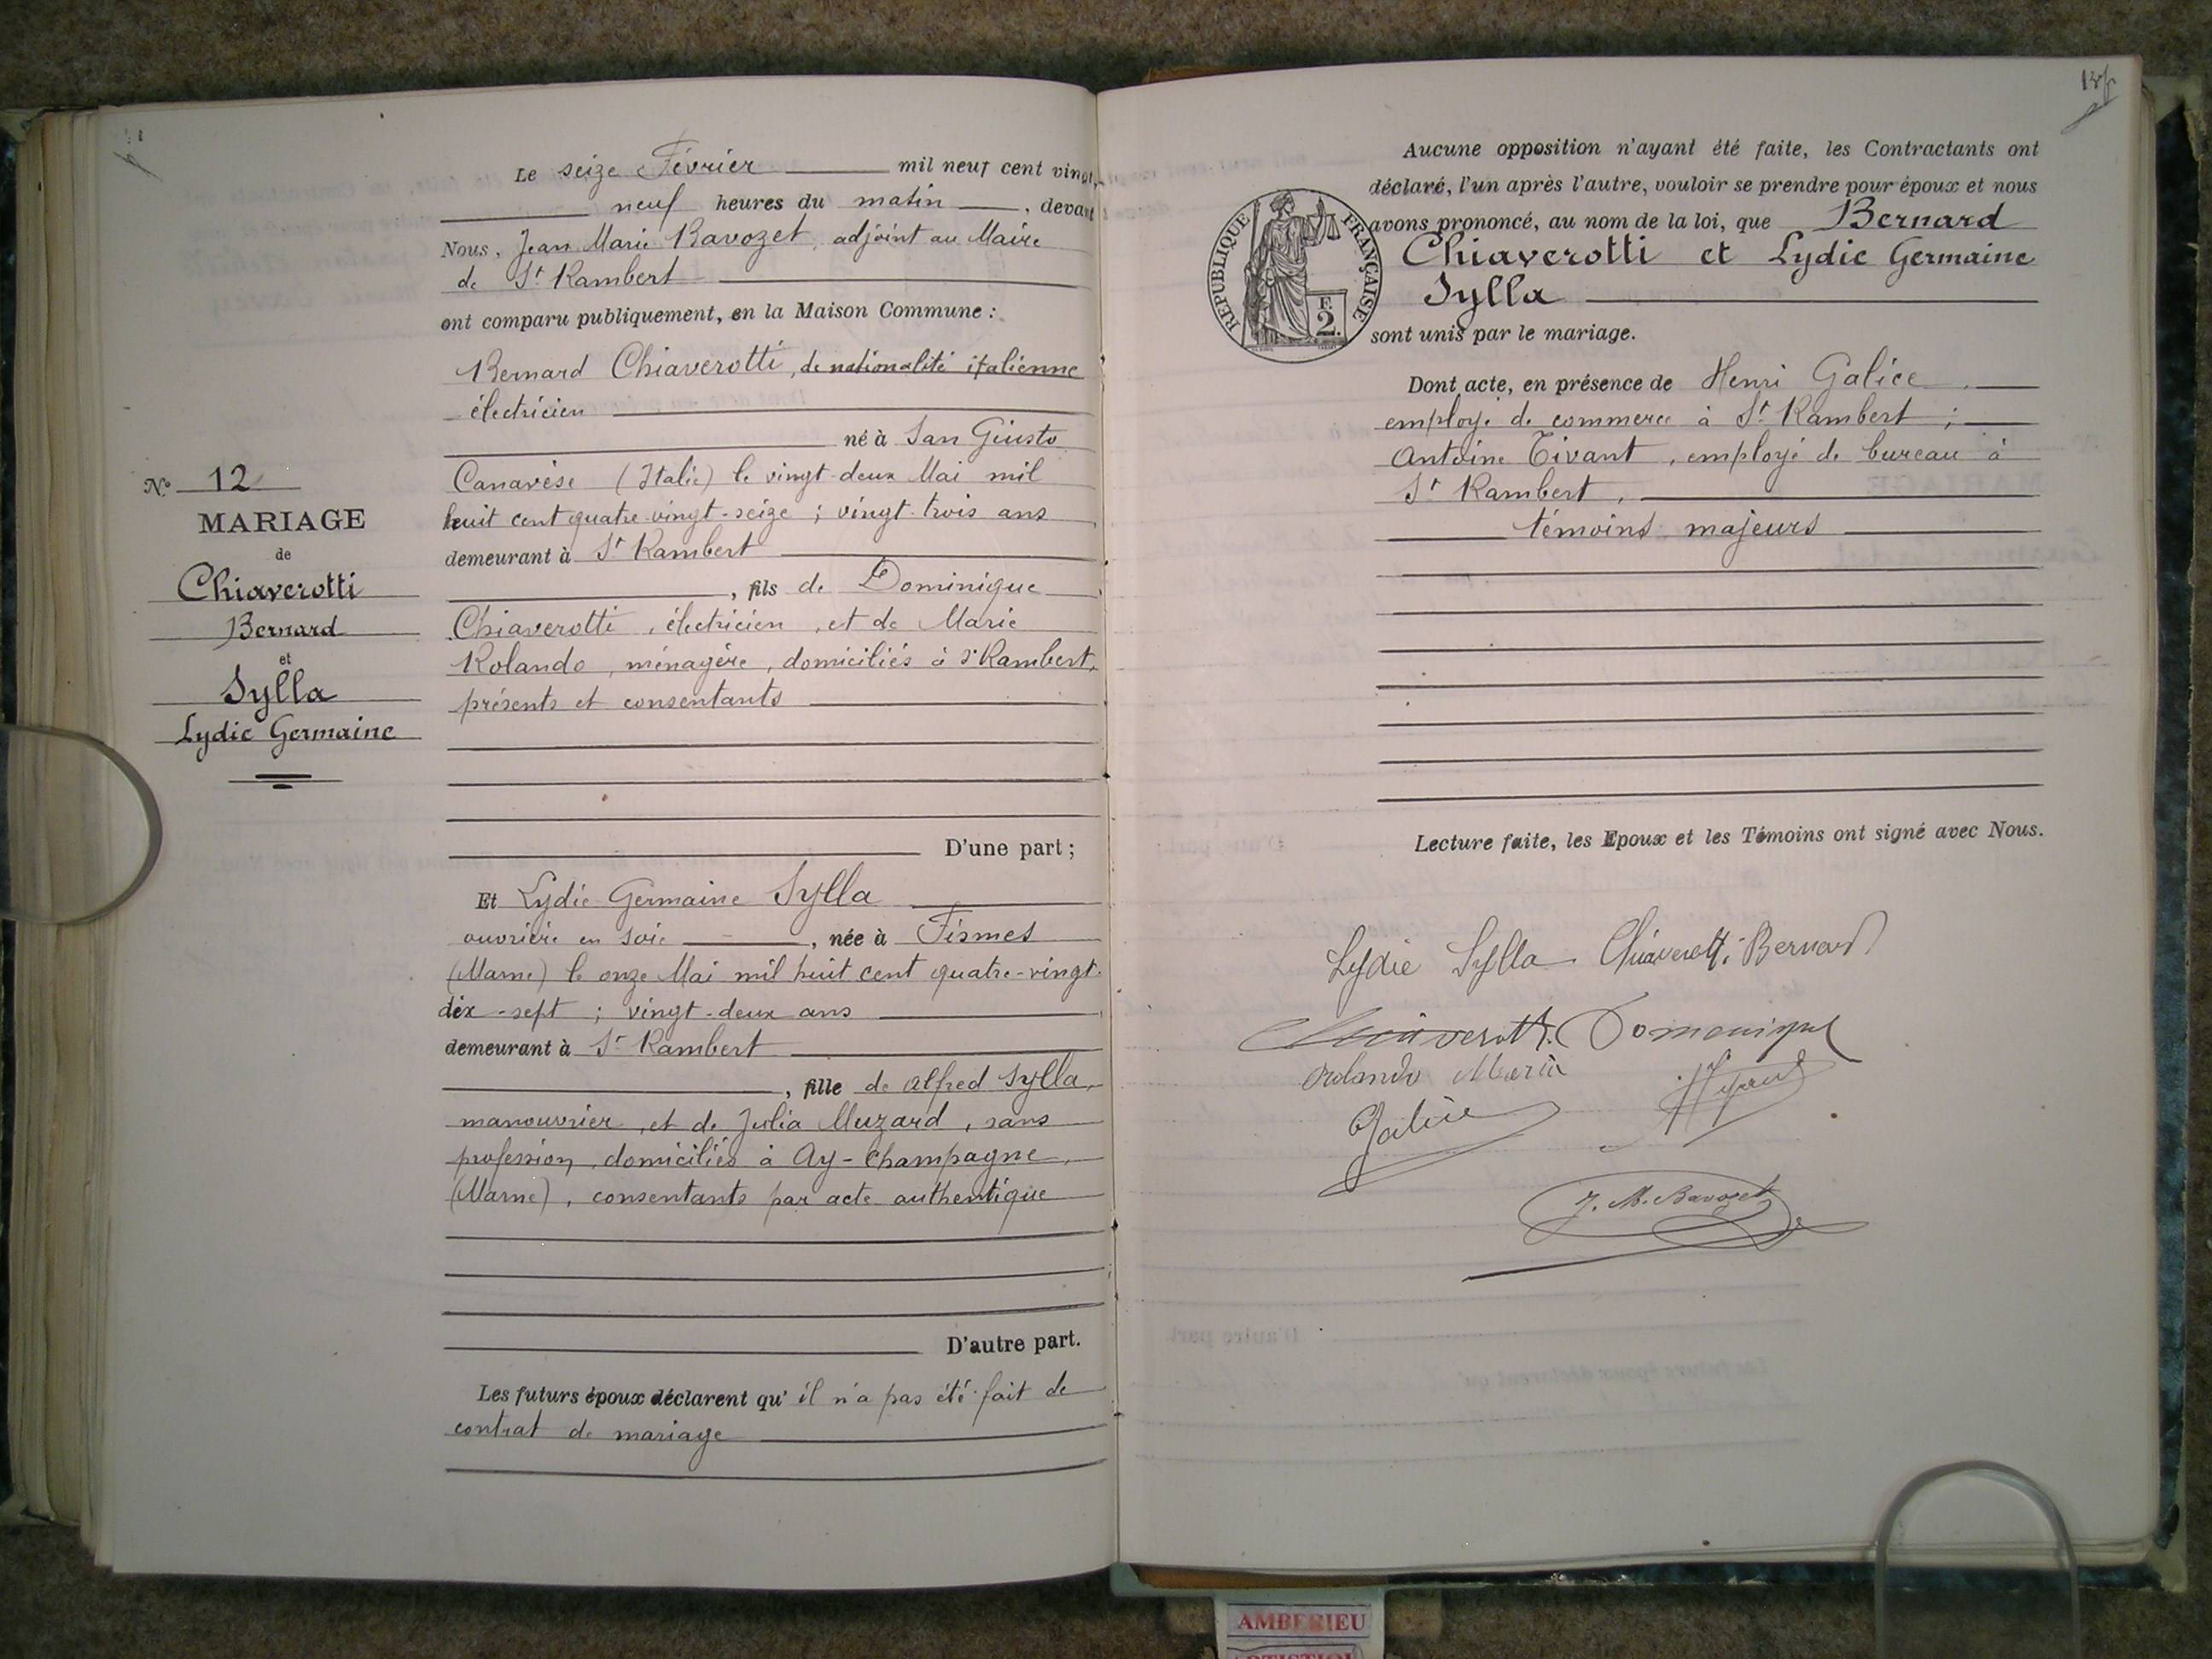 Le seize Février mil neuf cent vingt,
neuf heures du matin, devant
Nous, Jean Marie Ravozet, adjoint au Maire
de St Rambert
ont comparu publiquement, en la Maison Commune :
Bernard Chiaverotti, de nationalité italienne
électricien
né à San Giusto
Canavése (Italie) le vingt-deux Mai mil
huit cent quatre-vingt-seize ; vingt-trois ans
demeurant à St Rambert
, fils de Dominique
Chiaverotti, électricien, et de Marie
Rolando, ménagère, domiciliés à St Rambert,
présents et consentants
D'une part ;
Et Lydie Germaine Sylla
ouvrière en soie, née à Fismes
(Marne) le onze Mai mil huit cent quatre-vingt-
dix-sept ; vingt-deux ans
demeurant à St Rambert
, fille de Alfred Sylla,
manouvrier, et de Julia Muzard, sans
profession, domiciliés à Ay-Champagne,
(Marne), consentants par acte authentique
D'autre part.
Les futurs époux déclarent qu'il n'a pas été fait de
contrat de mariage
No 12
MARIAGE
de
Chiaverotti
Bernard
et
Sylla
Lydie Germaine
Aucune opposition n'ayant été faite, les Contractants ont
déclaré, l'un après l'autre, vouloir se prendre pour époux et nous
avons prononcé, au nom de la loi, que Bernard
Chiaverotti et Lydie Germaine
Sylla
sont unis par le mariage.
RÉPUBLIQUE FRANÇAISE
F.
2.
Dont acte, en présence de Henri Galice,
employé de commerce à St Rambert ;
Antoine Tivant, employé de bureau à
St Rambert,
témoins majeurs
Lecture faite, les Epoux et les Témoins ont signé avec Nous.
Lydie Sylla Chiaverotti Bernard
Chiaverotti Domenique
Rolando Maria
Galice
J. M. Ravozet
AMBERIEU